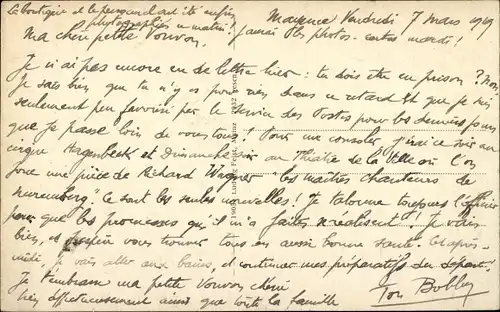 La boutique et le personnel ont été enfin
photographiés ce matin! J'aurai les photos-cartes mardi!
Mayence Vendredi 7 Mars 1919
Ma chère petite Vonvon.
Je n'ai pas encore eu de lettre hier: tu dois être en prison? Non,
Je sais bien que tu n'y es pour rien dans ce retard et que je suis
seulement peu favorisé par le service des Postes pour les derniers jours
que je passe loin de vous tous! Pour me consoler j'irai ce soir au
cirque Hagenbeck et Dimanche soir au Théâtre de la Ville où l'on
joue une pièce de Richard Wagner "les maîtres chanteurs de
Nuremberg". Ce sont les seules nouvelles! Je talonne toujours l'officier
pour que les promesses qu'il m'a faites se réalisent! Je vais
bien, et espère vous trouver tous en aussi bonne santé. Cet après-
midi je vais aller aux bains, et continuer mes préparatifs du départ!
Je t'embrasse ma petite Vonvon chérie
bien affectueusement ainsi que toute la famille
Ton